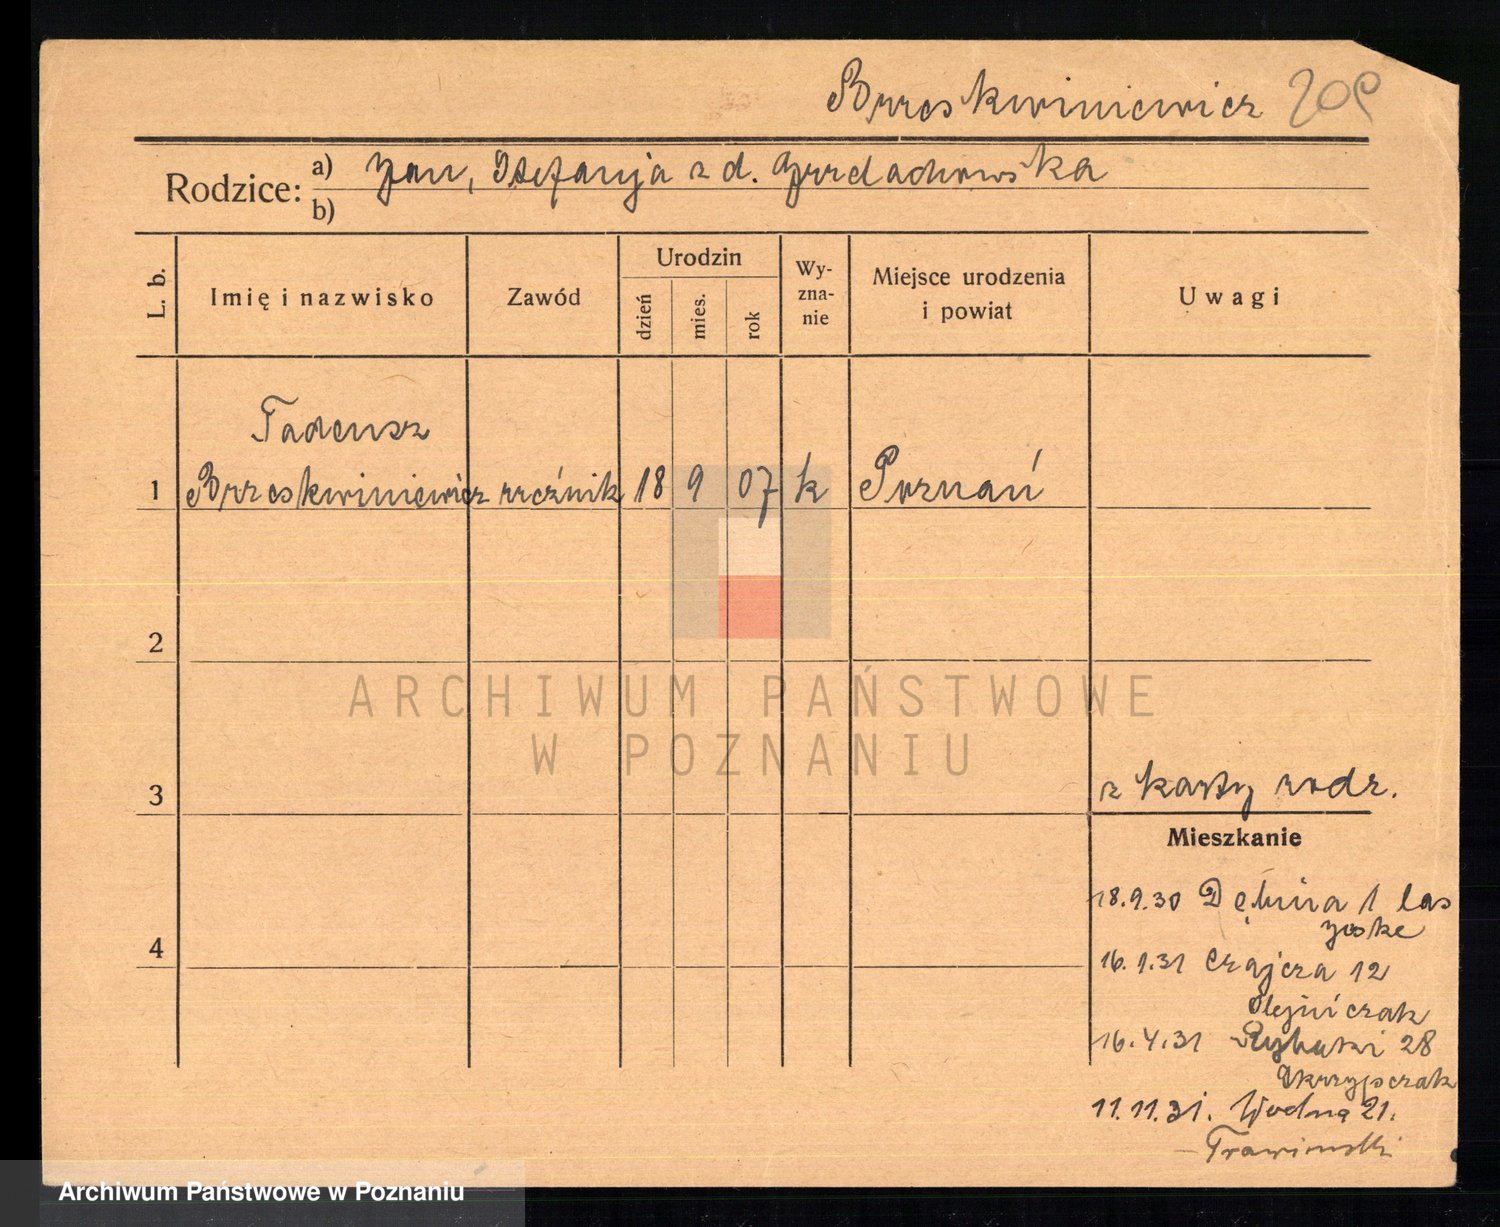 Brzeskwiniewicz 209
Rodzice: a) Jan, Stefanja z d.
b)
L. b. Imię i nazwisko Zawód Urodzin dzień mies. rok Wyznanie Miejsce urodzenia i powiat Uwagi
Tadeusz
1 Brzeskwiniewicz rzeźnik 18 9 07 k Poznań
2
ARCHIWUM PAŃSTWOWE
W POZNANIU
3 z karty rodz.
Mieszkanie
18.9.30 Dębina 1
4
16.1.31 Czajcza 12
Olejniczak
16.4.31 Rybaki 28
Skrzypczak
11.11.31. Wodna 21.
Archiwum Państwowe w Poznaniu